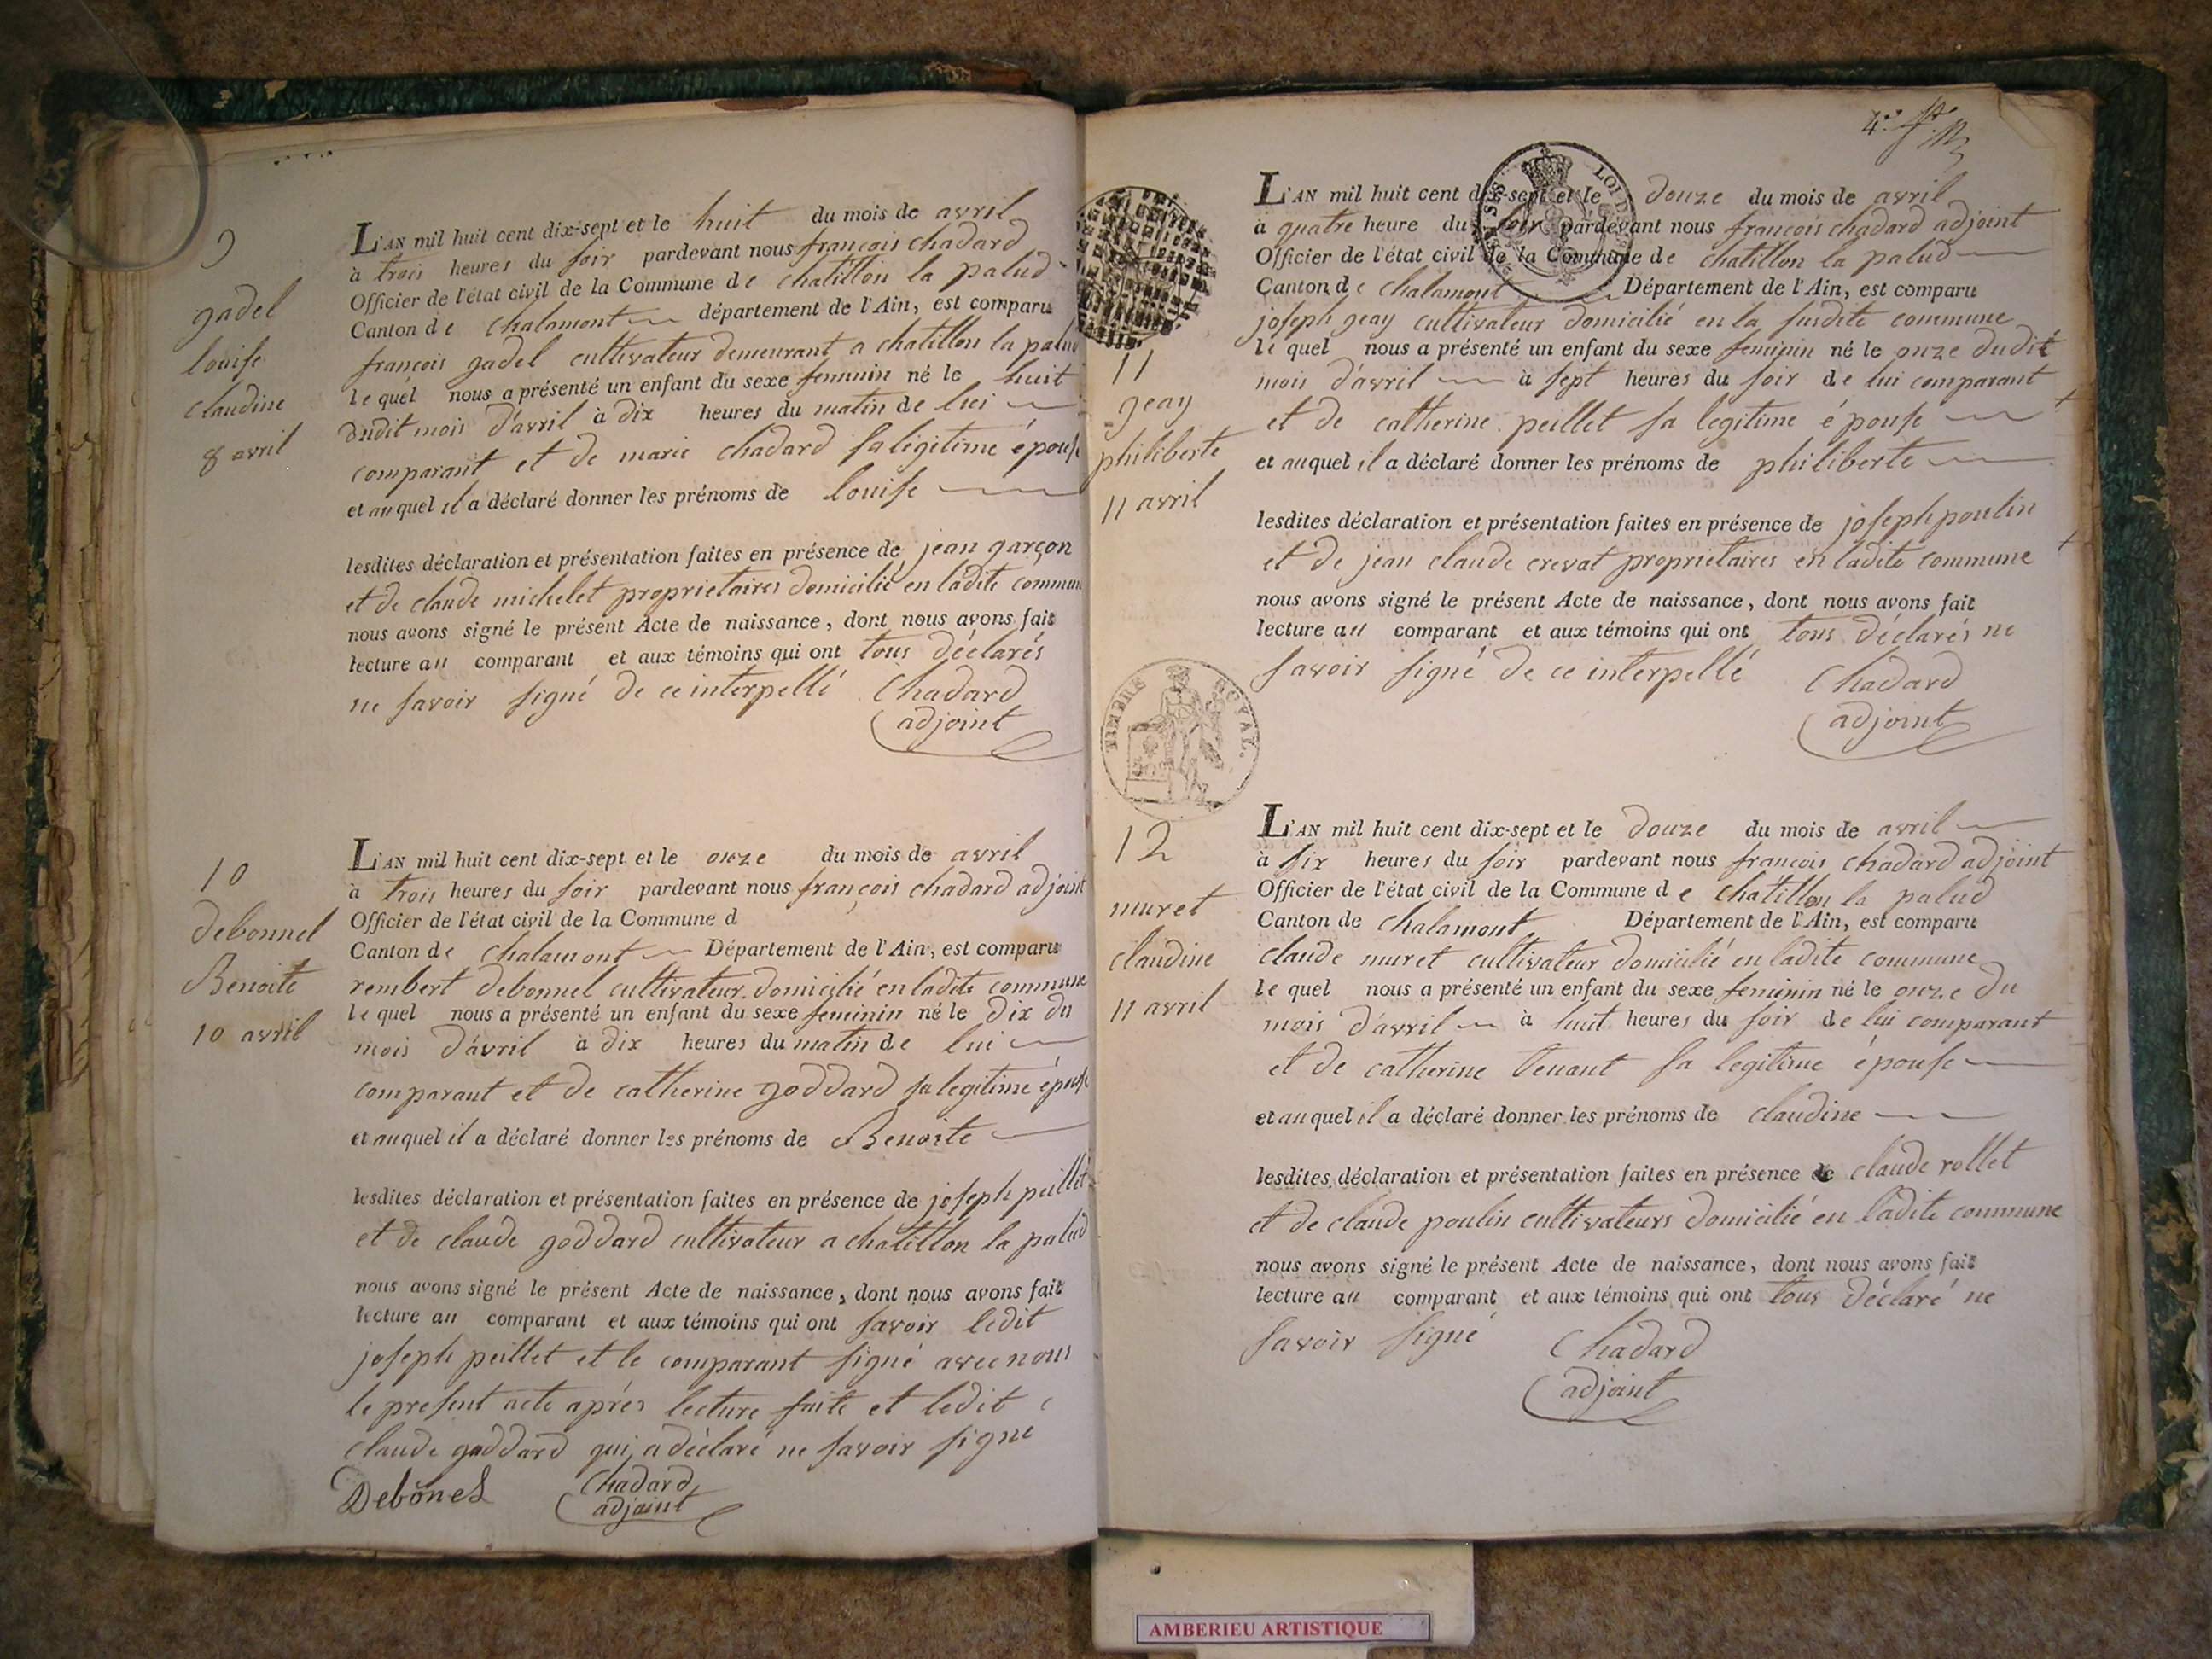 9
gadel
louise
claudine
8 avril
L'AN mil huit cent dix-sept et le huit du mois de avril
à trois heures du soir pardevant nous françois chadard
Officier de l'état civil de la Commune de chatillon la palud
Canton de Chalamont département de l'Ain, est comparu
françois gadel cultivateur demeurant a chatillon la palud
lequel nous a présenté un enfant du sexe feminin né le huit
dudit mois d'avril à dix heures du matin de lui
comparant et de marie chadard sa légitime épouse
et auquel il a déclaré donner les prénoms de louise
lesdites déclaration et présentation faites en présence de jean garçon
et de claude michelet proprietaires domicilié en ladite commune
nous avons signé le présent Acte de naissance, dont nous avons fait
lecture au comparant et aux témoins qui ont tous déclarés
ne savoir signé de ce interpellé Chadard
adjoint
10
Debonnel
Benoite
10 avril
L'AN mil huit cent dix-sept et le onze du mois de avril
à trois heures du soir pardevant nous françois chadard adjoint
Officier de l'état civil de la Commune d
Canton de Chalamont Département de l'Ain, est comparu
rembert debonnel cultivateur domicilié en ladite commune
lequel nous a présenté un enfant du sexe feminin né le dix du
mois d'avril à dix heures du matin de lui
comparant et de catherine goddard sa legitime épouse
et auquel il a déclaré donner les prénoms de Benoite
lesdites déclaration et présentation faites en présence de joseph peillet
et de claude goddard cultivateur a chatillon la palud
nous avons signé le présent Acte de naissance, dont nous avons fait
lecture au comparant et aux témoins qui ont savoir ledit
joseph peillet et le comparant signé avec nous
le present acte après lecture faite et ledit
claude goddard qui a déclaré ne savoir signé
Debonel Chadard
adjoint
4e
LOI
11
geay
philiberte
11 avril
L'AN mil huit cent dix-sept et le douze du mois de avril
à quatre heure du soir pardevant nous francois chadard adjoint
Officier de l'état civil de la Commune de chatillon la palud
Canton de Chalamont Département de l'Ain, est comparu
joseph geay cultivateur domicilié en la susdite commune
lequel nous a présenté un enfant du sexe feminin né le onze dudit
mois d'avril à sept heures du soir de lui comparant
et de catherine peillet sa legitime épouse
et auquel il a déclaré donner les prénoms de philiberte
lesdites déclaration et présentation faites en présence de joseph poulin
et de jean claude crevat proprietaires en ladite commune
nous avons signé le présent Acte de naissance, dont nous avons fait
lecture au comparant et aux témoins qui ont tous déclarés ne
savoir signé de ce interpellé Chadard
adjoint
TIMBRE ROYAL.
12
muret
claudine
11 avril
L'AN mil huit cent dix-sept et le douze du mois de avril
à six heures du soir pardevant nous françois chadard adjoint
Officier de l'état civil de la Commune de chatillon la palud
Canton de Chalamont Département de l'Ain, est comparu
claude muret cultivateur domicilié en ladite commune
lequel nous a présenté un enfant du sexe feminin né le onze du
mois d'avril à huit heures du soir de lui comparant
et de catherine tenant sa legitime épouse
et auquel il a déclaré donner les prénoms de claudine
lesdites déclaration et présentation faites en présence de claude rollet
et de claude poulin cultivateurs domicilié en ladite commune
nous avons signé le présent Acte de naissance, dont nous avons fait
lecture au comparant et aux témoins qui ont tous déclaré ne
savoir signé Chadard
adjoint
AMBERIEU ARTISTIQUE